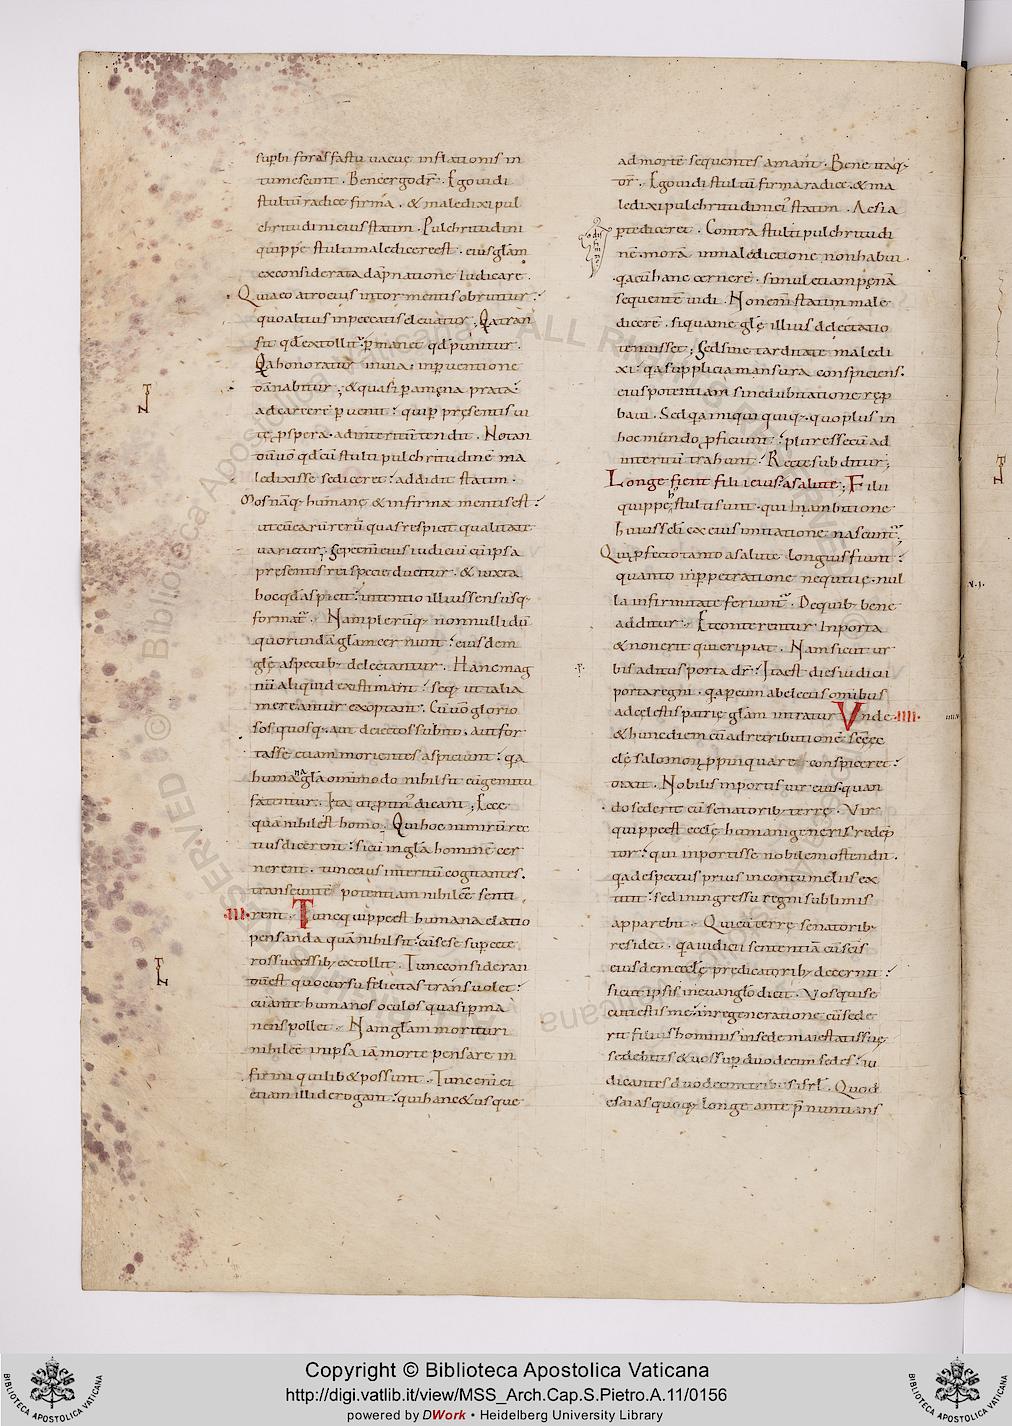 supbi foras fastu uacuę inflationis in
tumescunt. Bene ergo dr. Ego uidi
stultu radice firma. & maledixi pul
chritudini eius statim. Pulchritudini
quippe stulti maledicere est. eius glam
ex considerata dapnatione iudicare.
Quia eo atrocius in tormentis obruitur.
quo altius in peccatis eleuatur; Qa tran
sit qd extollit. pmanet qd punitur.
Qa honoratur in uia. in puentione
danabitur; & quasi p amęna prata
ad carcere puenit. qui p pręsentis ui
tę pspera. ad interitu tendit. Notan
du uo qd cu stulti pulchritudine ma
ledixisse se diceret. addidit statim.
Mos naq humanę & infirmę mentis est.
ut cu earu reru quas respicit qualitate
uarietur; Sepe eni eius iudiciu cu ipsa
pręsentis rei specie ducitur. & iuxta
hoc qd aspicit. intentio illius sensusq
format. Nam pleruq nonnulli du
quorunda glam cernunt. eiusdem
glę aspectib delectantur. Hanc mag
nu aliquid existimant. seq ut talia
mereantur exoptant. Cu uo glorio
sos quosq. aut deiectos subito. aut for
tasse etiam morientes aspiciunt. qa
humana gla omnimodo nihil sit cu gemitu
fatentur. Ita ut ptin dicant; Ecce
qua nihil est homo. Qui hoc nimiru rec
tius dicerent. si cu in gla homine cer
nerent. tunc eius interitu cogitantes.
transeunte potentiam nihil ee senti
.III. rent. Tunc quippe est humana elatio
pensanda qua nihil sit. cu sese sup cete
ros successib extollit. Tunc consideran
du est quo cursu felicitas transuolet.
cu ante humanos oculos quasi pma
nens pollet. Nam glam morituri
nihil ee in ipsa ia morte pensare in
firmi quilib& possunt. Tunc eni ei
etiam illi derogant. qui hanc & usque
ad morte sequentes amant. Bene itaq
dr. Ego uidi stultu firma radice. & ma
ledixi pulchritudini ei statim. Ac si a
pte diceret. Contra stulti pulchritudi
ne. mora in maledictione non habui.
qa cu hanc cernere. simul etiam pęna
sequente uidi. Non eni statim male
dicere. si qua me glę illius delectatio
tenuisset; Sed sine tarditate maledi
xi. qa supplicia mansura conspiciens.
eius potentiam sine dubitatione rep
baui. Sed qa iniqui quiq. quo plus in
hoc mundo pficiunt. plures secu ad
interitu trahunt. Recte subditur;
Longe fient filii eius a salute; Filii
quippe stulti sunt. qui in ambitione
huius sedi ex eius imitatione nascunt.
Qui pfecto tanto a salute longius fiunt.
quanto in ppetratione nequitię. nul
la infirmitate feriunt. De quib bene
additur. Et conterentur in porta
& non erit qui eripiat. Nam sicut ur
bis aditus porta dr. Ita est dies iudicii
porta regni. qa p eum ab electis omnibus
ad celestis patrię glam intratur. Vnde .IIII.
& hunc diem cu ad retributione scęę
eclę salomon ppinquare conspiceret.
dixit. Nobilis in portis uir eius. quan
do sederit cu senatorib terrę. Vir
quippe est eccłę humani generis redep
tor. qui in portis se nobilem ostendit.
qa despectus prius in contumeliis ex
titit. sed in ingressu regni sublimis
apparebit. Qui cu terrę senatorib
residet. qa iudicii sententia cu scis
eiusdem ecclę predicatorib decernit.
sicut ipse in euanglo dicit. Vos qui se
cuti estis me. in regeneratione cu sede
rit filius hominis in sede maiestatis suę.
sedebitis & uos sup duodecim sedes. iu
dicantes duodecim trib isrl. Quod
esaias quoq longe ante pnuntians
Copyright © Biblioteca Apostolica Vaticana
http://digi.vatlib.it/view/MSS_Arch.Cap.S.Pietro.A.11/0156
powered by DWork • Heidelberg University Library